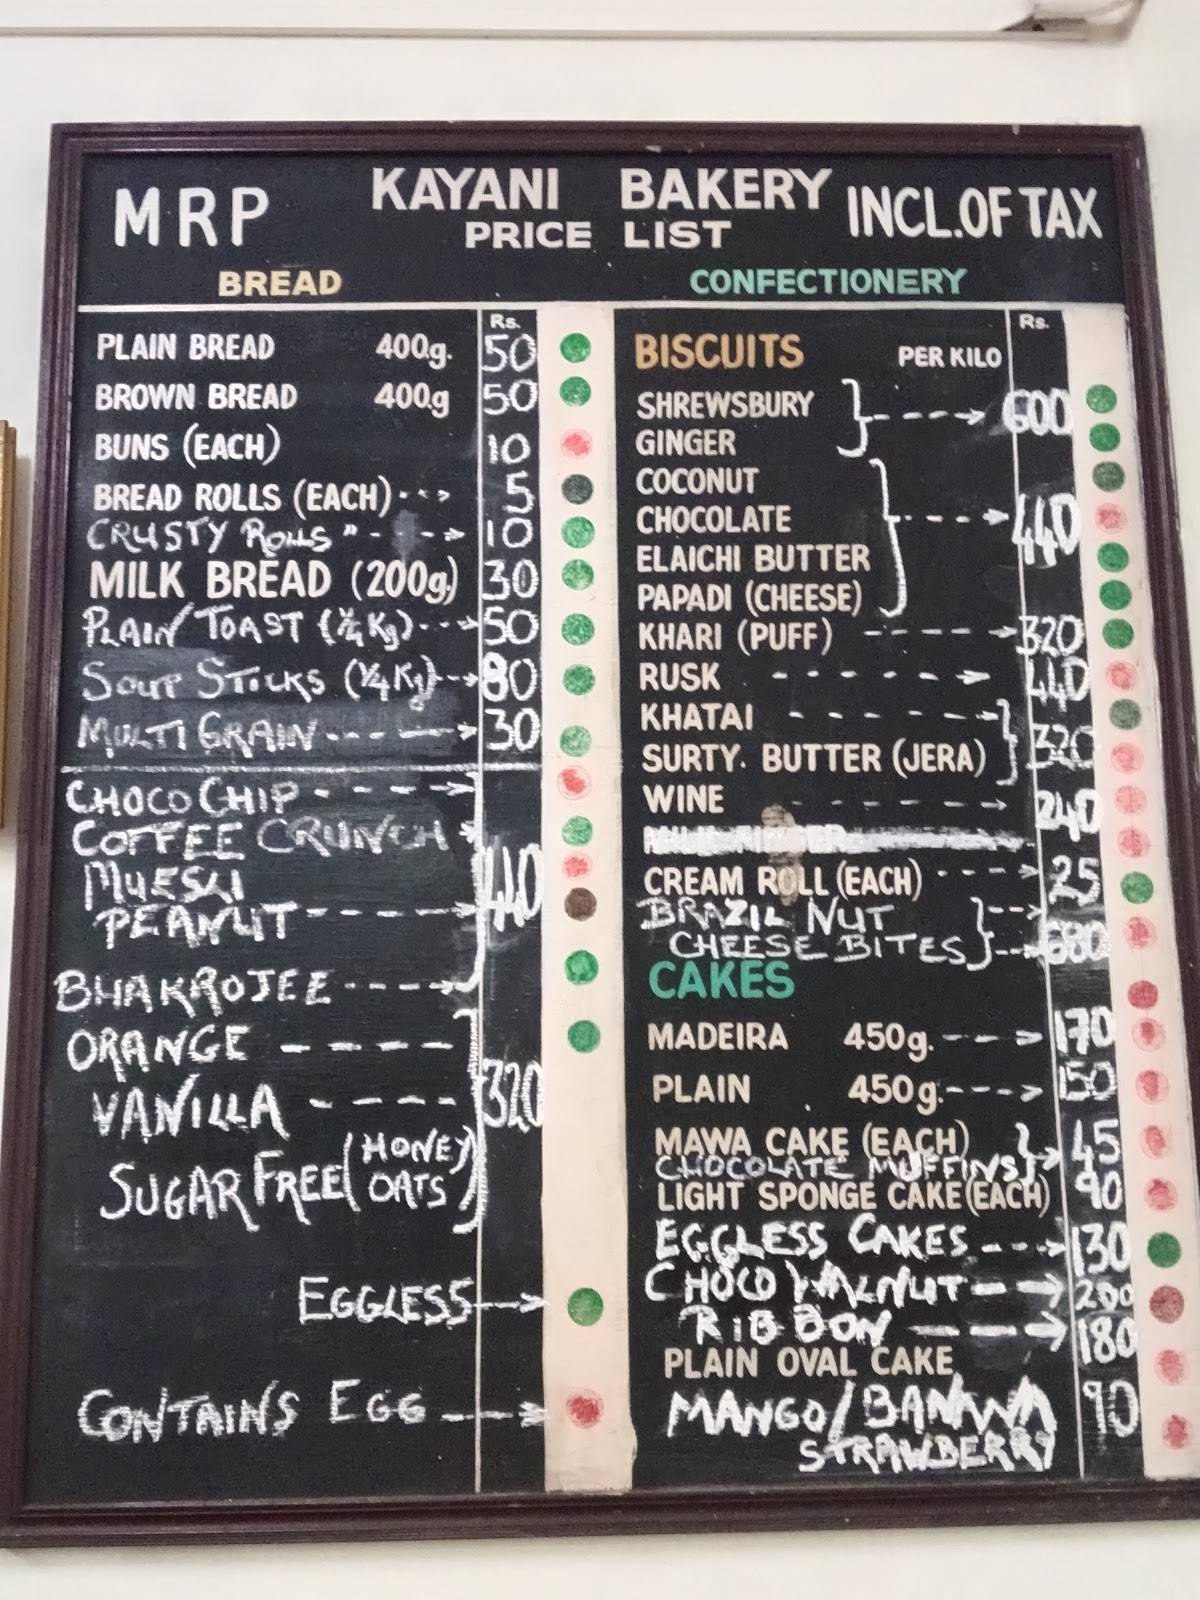 KAYANI BAKERY
MRP
INCL.OF TAX
PRICE LIST
BREAD
Rs.
PLAIN BREAD 400g. 50
BROWN BREAD 400g 50
BUNS (EACH) 10
BREAD ROLLS (EACH) 5
CRUSTY ROLLS " 10
MILK BREAD (200g) 30
PLAIN TOAST (¼ Kg) 50
SOUP STICKS (¼ Kg) 80
MULTI GRAIN 30
CHOCO CHIP
COFFEE CRUNCH
MUESLI 440
PEANUT
BHAKROJEE
ORANGE
VANILLA 320
SUGAR FREE (HONEY
OATS)
EGGLESS
CONTAINS EGG
CONFECTIONERY
Rs.
BISCUITS PER KILO
SHREWSBURY 600
GINGER
COCONUT
CHOCOLATE 440
ELAICHI BUTTER
PAPADI (CHEESE)
KHARI (PUFF) 320
RUSK 440
KHATAI
SURTY. BUTTER (JERA) 320
WINE 240
CREAM ROLL (EACH) 25
BRAZIL NUT
CHEESE BITES 680
CAKES
MADEIRA 450g. 170
PLAIN 450g. 150
MAWA CAKE (EACH) 45
CHOCOLATE MUFFINS
LIGHT SPONGE CAKE (EACH) 90
EGGLESS CAKES 130
CHOCO WALNUT 200
RIBBON 180
PLAIN OVAL CAKE
MANGO/BANANA 90
STRAWBERRY